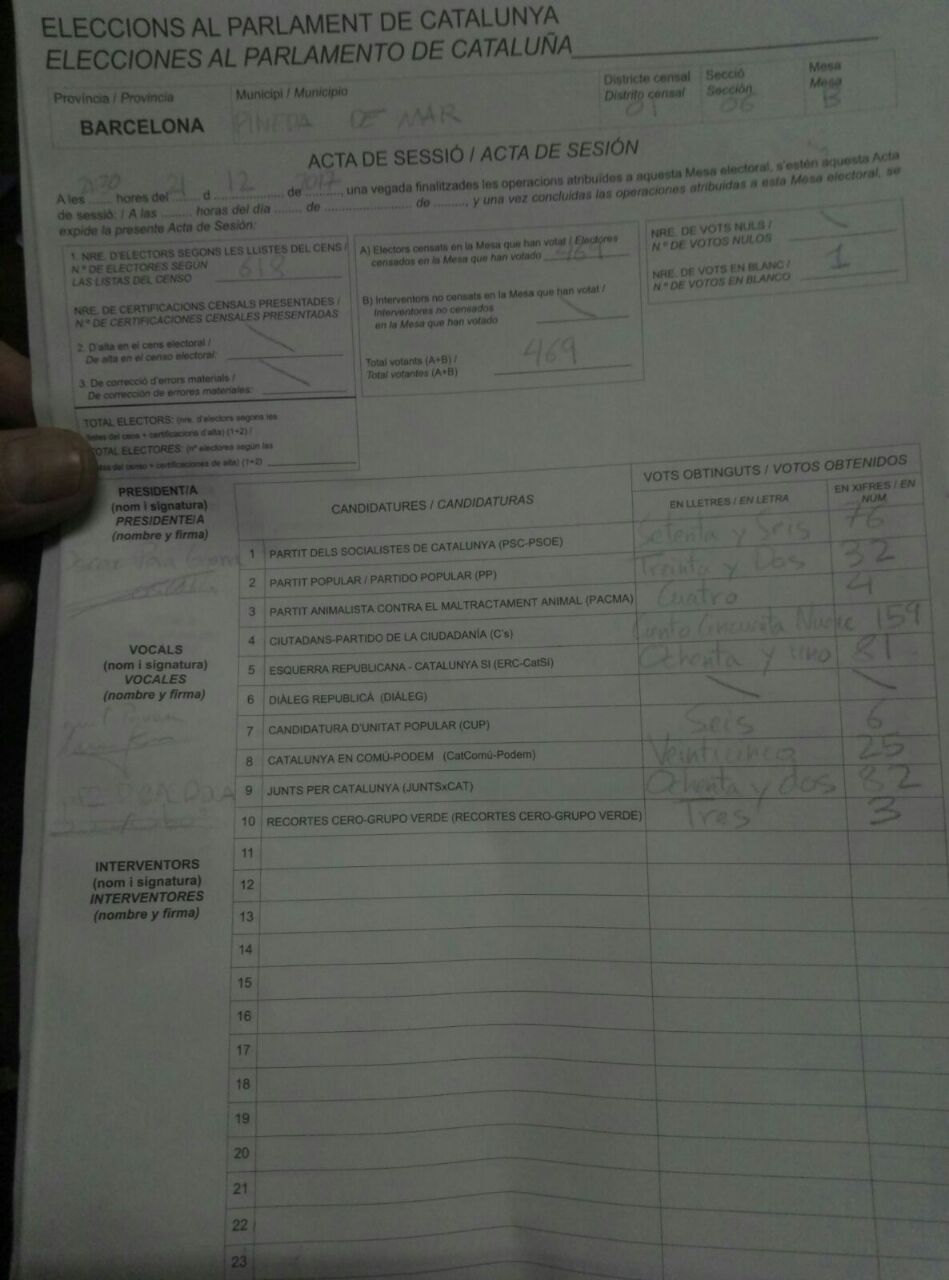 ELECCIONS AL PARLAMENT DE CATALUNYA
ELECCIONES AL PARLAMENTO DE CATALUÑA
Província / Provincia
BARCELONA
Municipi / Municipio
PINEDA DE MAR
Districte censal
Distrito censal
01
Secció
Sección
06
Mesa
Mesa
B
ACTA DE SESSIÓ / ACTA DE SESIÓN
A les 2130 hores del 21 d 12 de 2017, una vegada finalitzades les operacions atribuïdes a aquesta Mesa electoral, s'estén aquesta Acta
de sessió: / A las ........ horas del día ....... de ...................... de ........, y una vez concluidas las operaciones atribuidas a esta Mesa electoral, se
expide la presente Acta de Sesión:
1. NRE. D'ELECTORS SEGONS LES LLISTES DEL CENS /
N.º DE ELECTORES SEGÚN
LAS LISTAS DEL CENSO 618
NRE. DE CERTIFICACIONS CENSALS PRESENTADES /
N.º DE CERTIFICACIONES CENSALES PRESENTADAS
2. D'alta en el cens electoral /
De alta en el censo electoral:
3. De correcció d'errors materials /
De corrección de errores materiales:
TOTAL ELECTORS: (nre. d'electors segons les
llistes del cens + certificacions d'alta) (1+2) /
TOTAL ELECTORES: (nº electores según las
listas del censo + certificaciones de alta) (1+2)
A) Electors censats en la Mesa que han votat / Electores
censados en la Mesa que han votado 469
B) Interventors no censats en la Mesa que han votat /
Interventores no censados
en la Mesa que han votado
Total votants (A+B) /
Total votantes (A+B) 469
NRE. DE VOTS NULS /
N.º DE VOTOS NULOS
NRE. DE VOTS EN BLANC /
N.º DE VOTOS EN BLANCO 1
PRESIDENT/A
(nom i signatura)
PRESIDENTE/A
(nombre y firma)
VOCALS
(nom i signatura)
VOCALES
(nombre y firma)
INTERVENTORS
(nom i signatura)
INTERVENTORES
(nombre y firma)
CANDIDATURES / CANDIDATURAS
VOTS OBTINGUTS / VOTOS OBTENIDOS
EN LLETRES / EN LETRA
EN XIFRES / EN NÚM
1 PARTIT DELS SOCIALISTES DE CATALUNYA (PSC-PSOE) Setenta y Seis 76
2 PARTIT POPULAR / PARTIDO POPULAR (PP) Treinta y Dos 32
3 PARTIT ANIMALISTA CONTRA EL MALTRACTAMENT ANIMAL (PACMA) Cuatro 4
4 CIUTADANS-PARTIDO DE LA CIUDADANÍA (C's) Ciento Cincuenta Nueve 159
5 ESQUERRA REPUBLICANA - CATALUNYA SI (ERC-CatSí) Ochenta y uno 81
6 DIÀLEG REPUBLICÀ (DIÀLEG)
7 CANDIDATURA D'UNITAT POPULAR (CUP) Seis 6
8 CATALUNYA EN COMÚ-PODEM (CatComú-Podem) Veinticinco 25
9 JUNTS PER CATALUNYA (JUNTSxCAT) Ochenta y dos 82
10 RECORTES CERO-GRUPO VERDE (RECORTES CERO-GRUPO VERDE) Tres 3
11
12
13
14
15
16
17
18
19
20
21
22
23